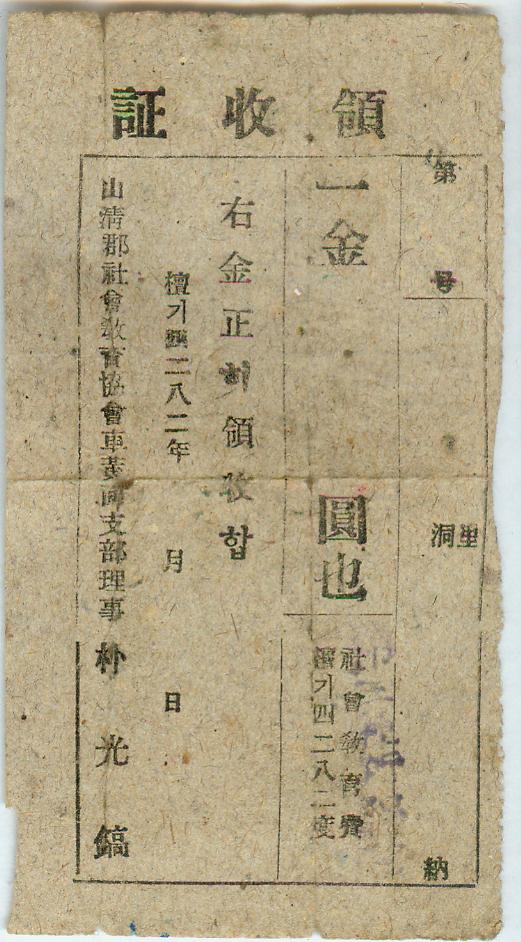 領收証
第 号
里
洞 納
一金 圓也
社會敎育費
檀기四二八二度
右金正히領收합
檀기四二八二年 月 日
山淸郡社會敎育協會車黃面支部理事 朴光鎬